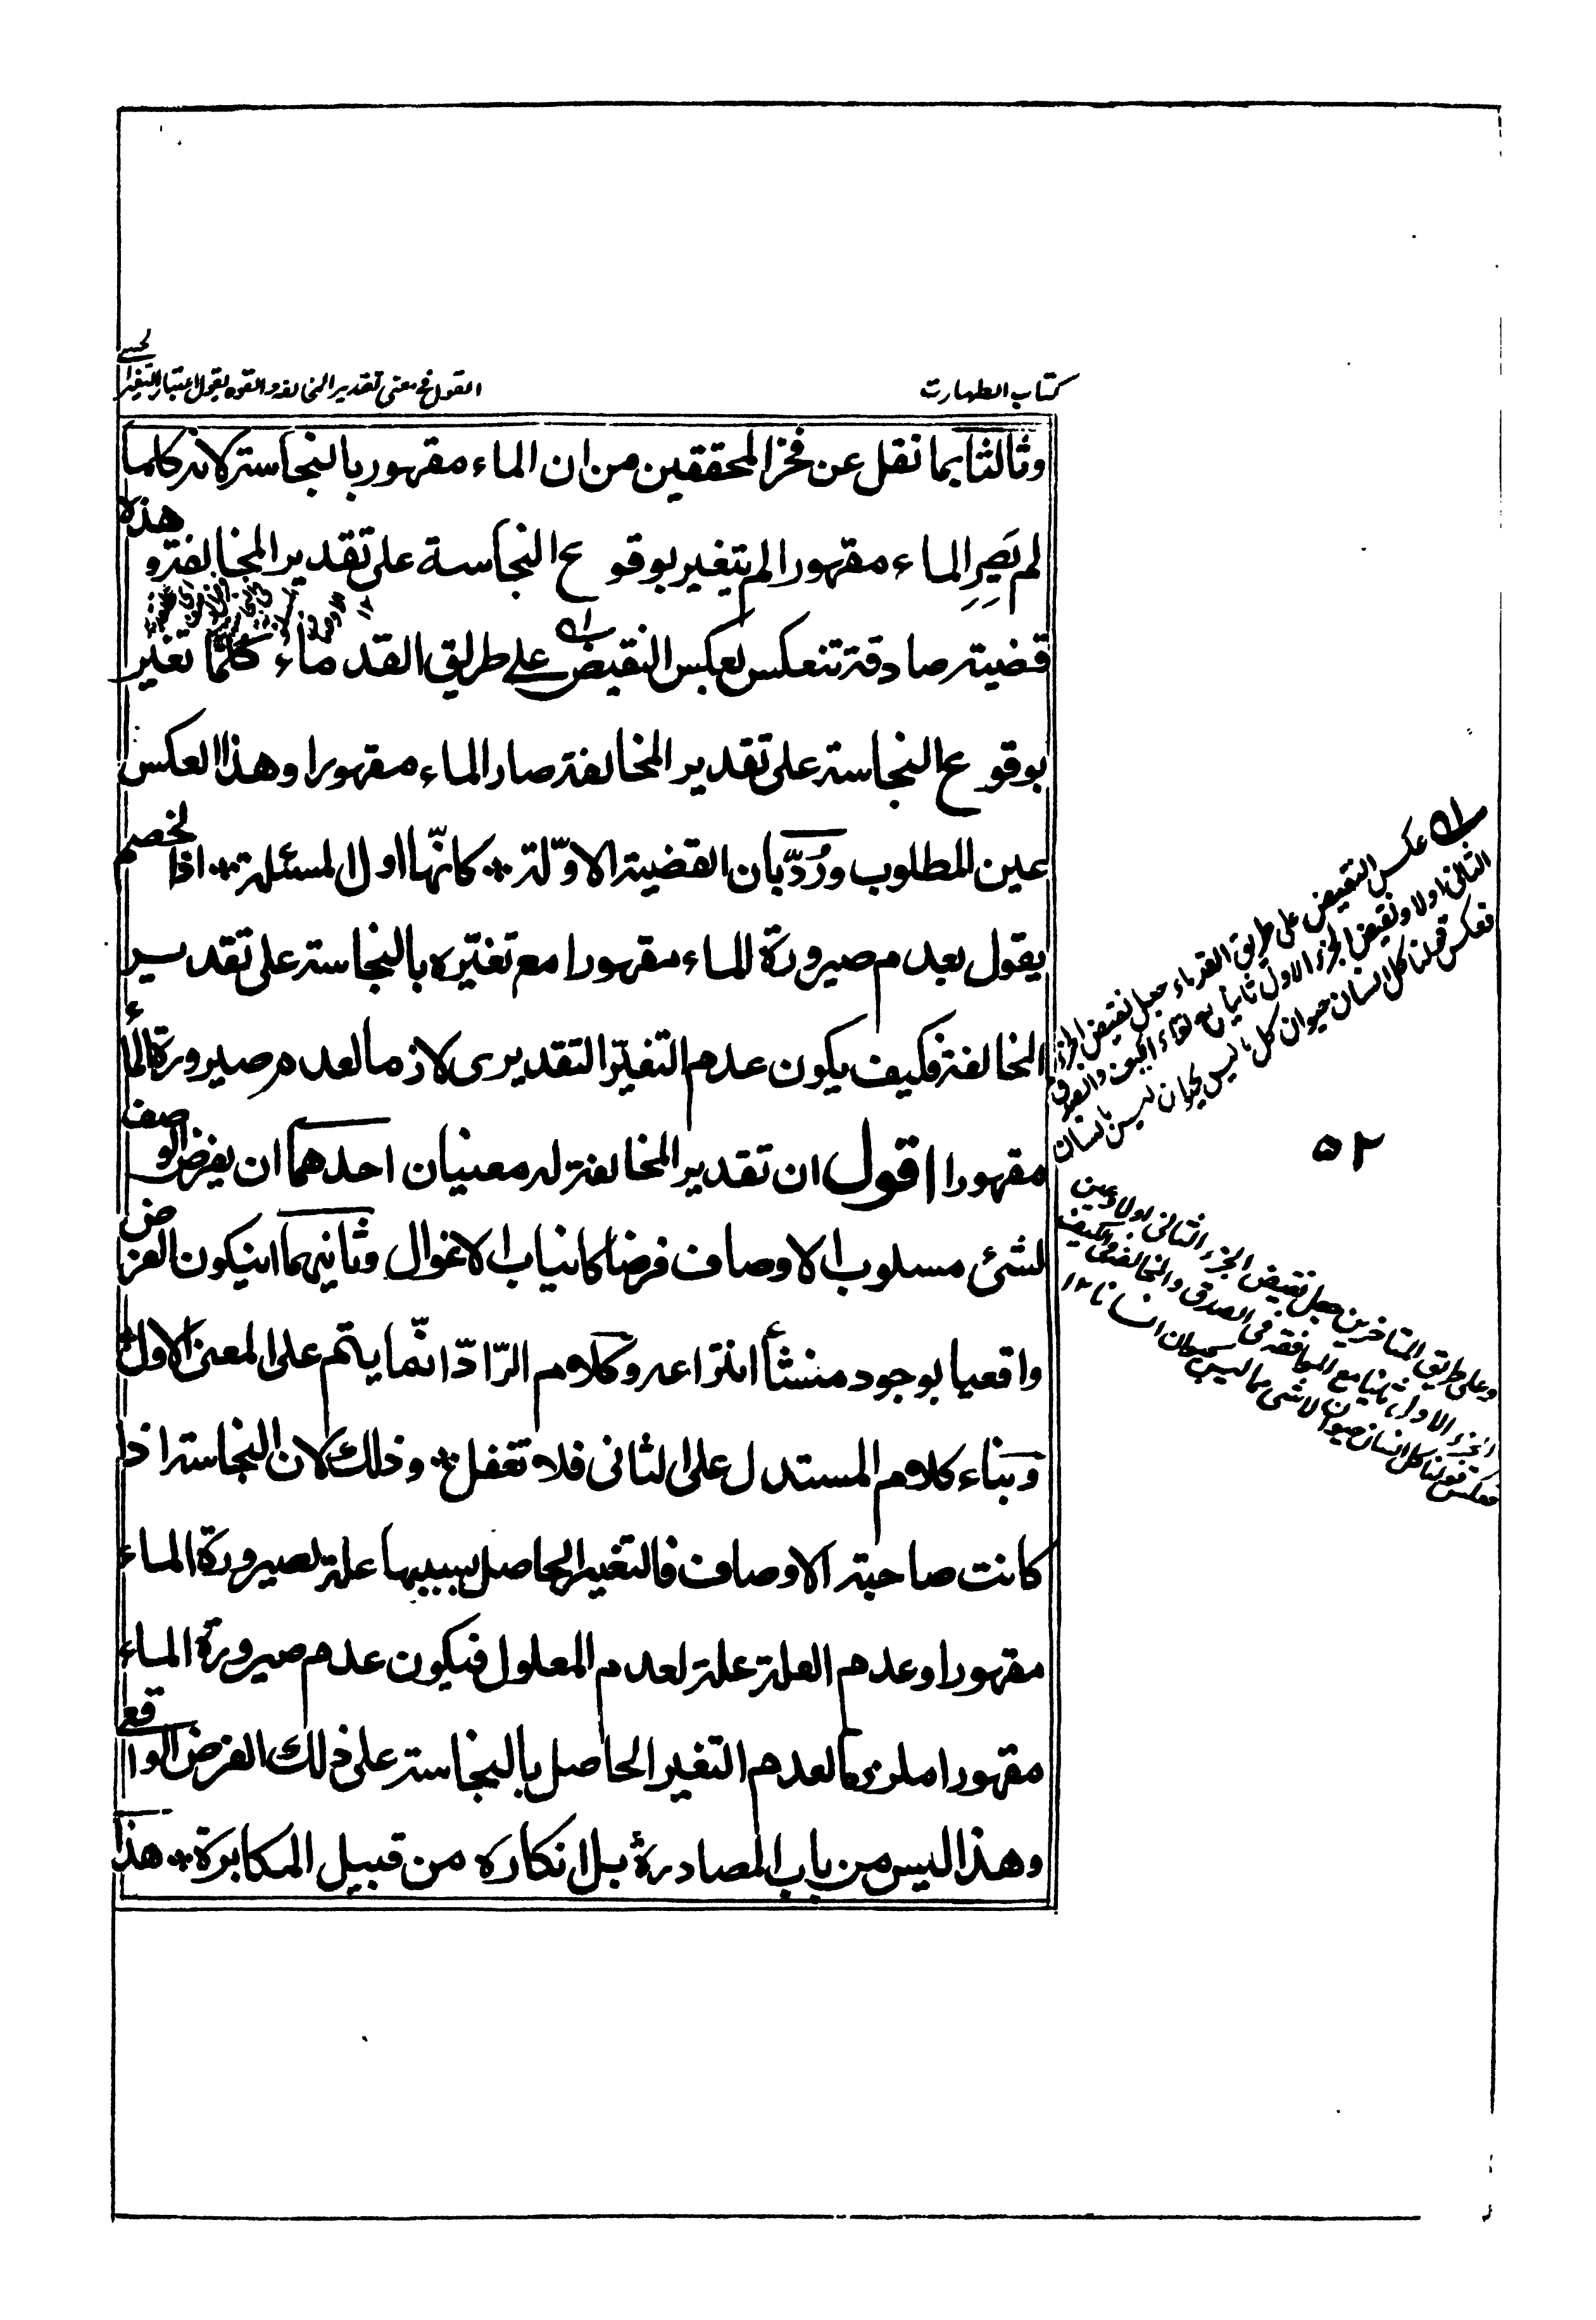 كتاب الطهارت
القول فى معنى تقدير المخالفة والقوة بقول اعتبار التغير الحسي
وثالثا بما نقل عن فخر المحققين من ان الماء مقهور بالنجاسة لانه كلما
لم يَصِرِ الماء مقهورا لم يتغير بوقوع النجاسة على تقدير المخالفة وهذه
قضية صادقة تنعكس بعكس النقيض على طريق القدماء كلما تغير
بوقوع النجاسة على تقدير المخالفة صار الماء مقهورا وهذا العكس
عين المطلوب ورُدّ بان القضية الاوّلة * كانّها اول المسئلة * اذا لخصم
يقول بعدم صيرورة الماء مقهورا مع تغيّره بالنجاسة على تقدير
المخالفة فكيف يكون عدم التغيّر التقديرى لازما لعدم صيرورة الماء
مقهورا اقول ان تقدير المخالفة له معنيان احدهما ان يفرض الوصف
لشئ مسلوب الاوصاف فرضا كانياب الاغوال وثانيهما ان يكون الفرض
واقعيا بوجود منشأ انتزاعه وكلام الرّادّ انّما يتم على المعنى الاول
وبناء كلام المستدل على الثانى فلا تغفل * وذلك لان النجاسة اذا
كانت صاحبة الاوصاف فالتغير الحاصل بسببها علة لصيرورة الماء
مقهورا وعدم العلة علة لعدم المعلول فيكون عدم صيرورة الماء
مقهورا ملزوما لعدم التغير الحاصل بالنجاسة على ذلك الفرض الواقع
وهذا ليس من باب المصادرة بل انكاره من قبيل المكابرة * هذا
عكس النقيض على طريق القدماء جعل نقيض الجزء
الثانى اولا ونقيض الجزء الاول ثانيا مع بقاء الكيف والصدق
فعكس قولنا كل انسان حيوان كل ما ليس بحيوان ليس بانسان
٥٢
وعلى طريق المتاخرين جعل نقيض الجزء الثانى اولا وعين
الجزء الاول ثانيا مع الموافقة فى الصدق والمخالفة فى الكيف
فعكس قولنا كل انسان حيوان لا شى مما ليس بحيوان انسانا ١٢